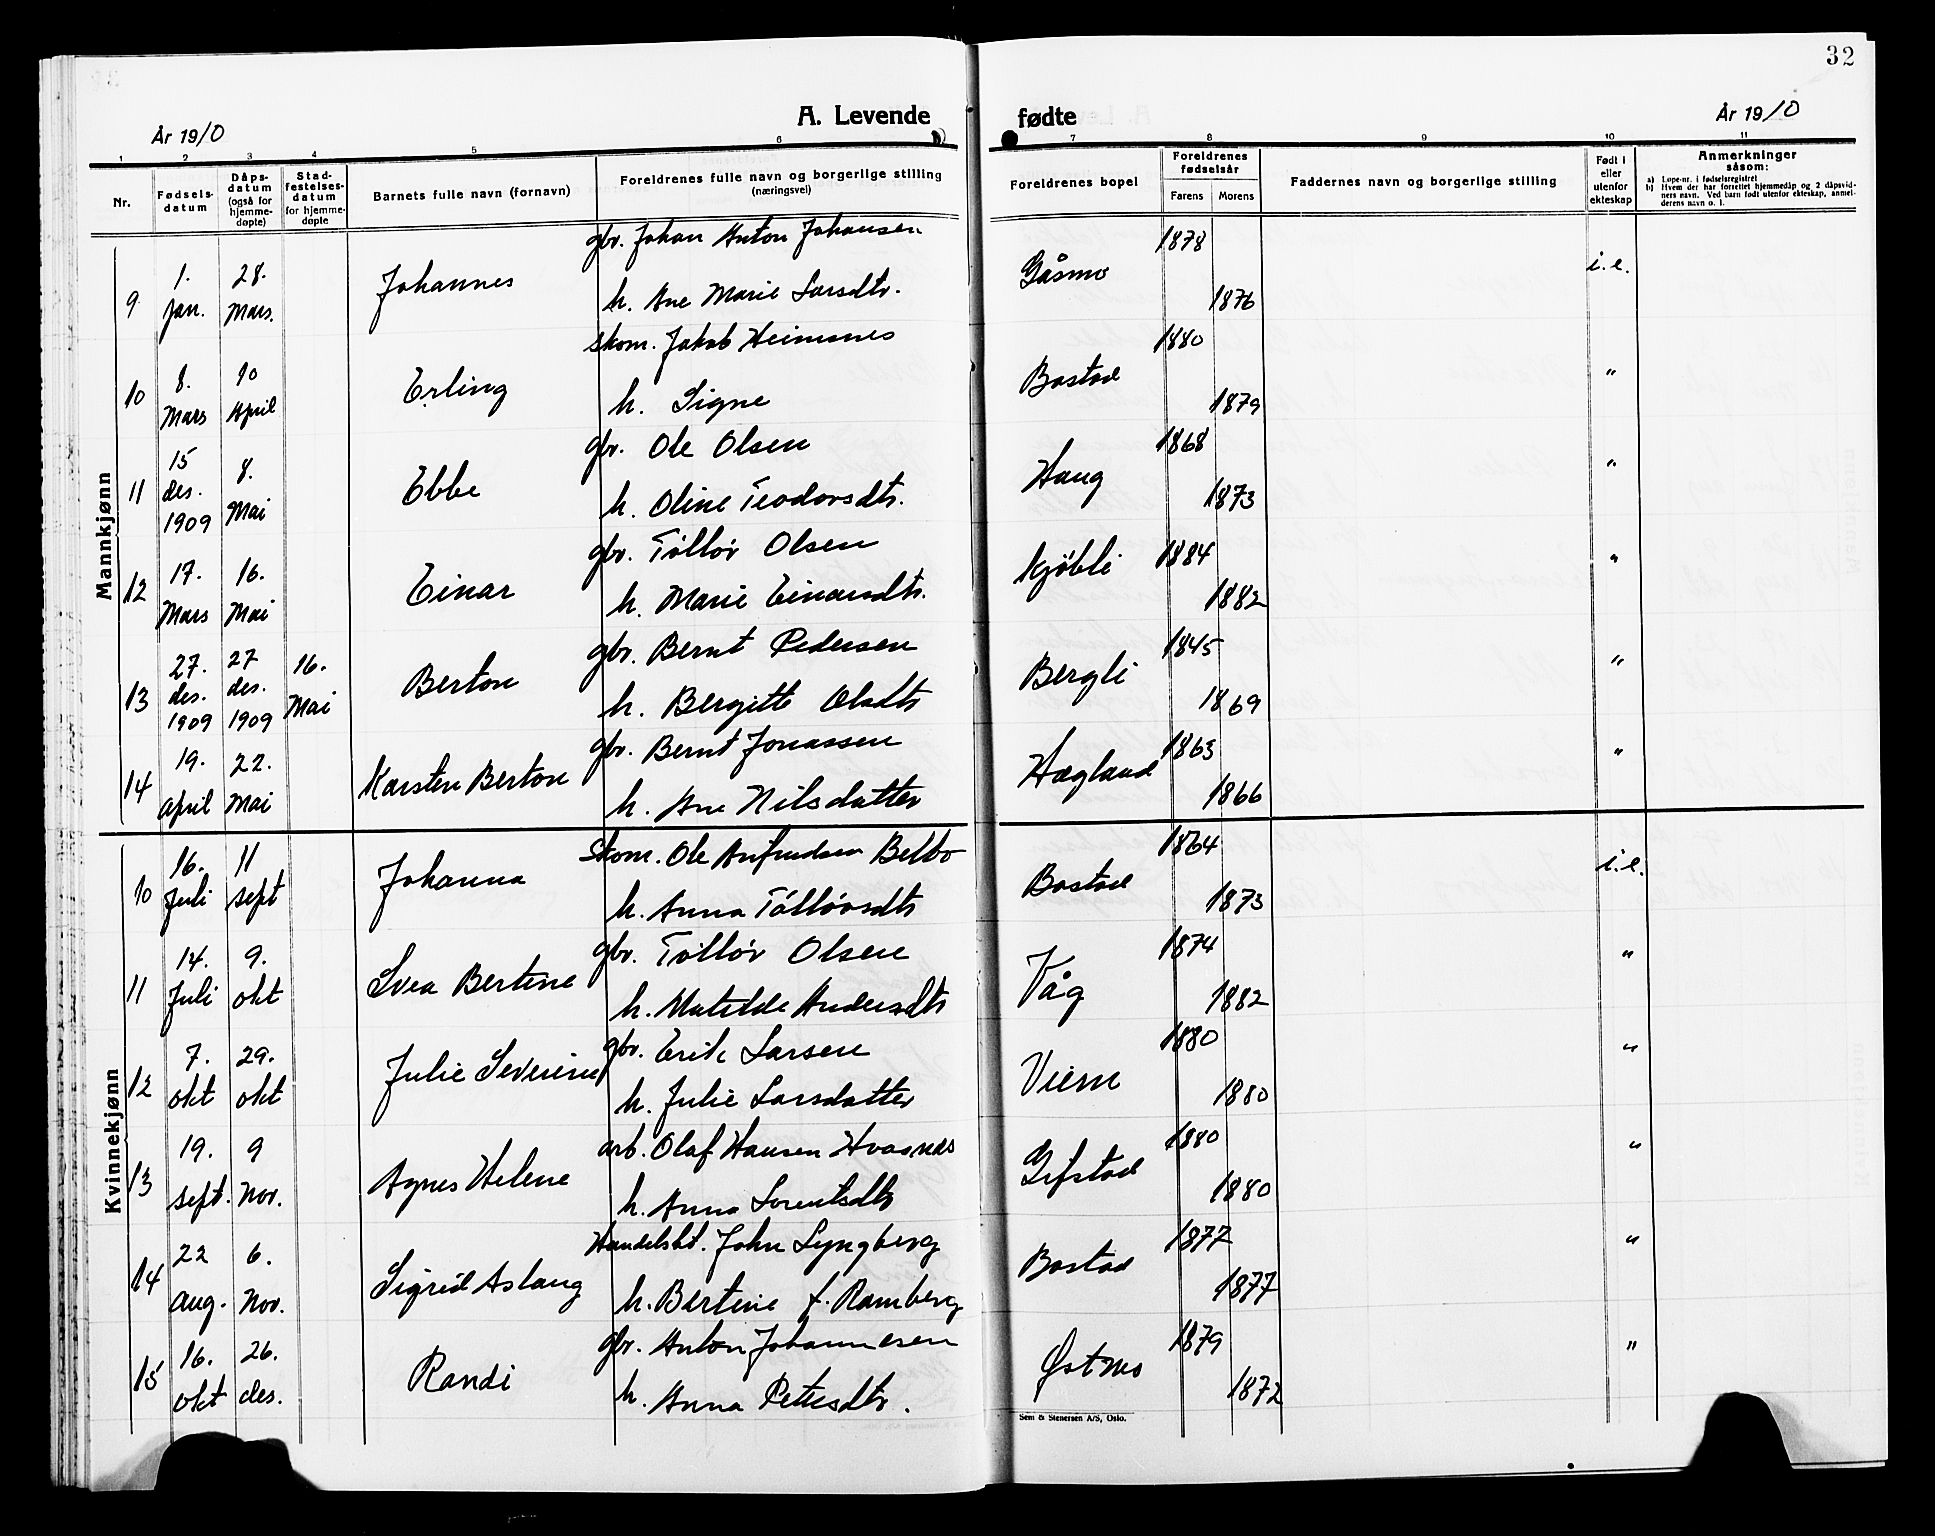 32
A. Levende fødte
År 1910
År 1910
1 2 3 4 5 6 7 8 9 10 11
Nr.
Fødselsdatum
Dåpsdatum (også for hjemmedøpte)
Stadfestelsesdatum for hjemmedøpte
Barnets fulle navn (fornavn)
Foreldrenes fulle navn og borgerlige stilling (næringsvei)
Foreldrenes bopel
Foreldrenes fødselsår
Farens Morens
Faddernes navn og borgerlige stilling
Født i eller utenfor ekteskap
Anmerkninger såsom:
a) Løpe-nr. i fødselsregistret
b) Hvem der har forrettet hjemmedåp og 2 dåpsvidners navn. Ved barn født utenfor ekteskap, anmelderens navn o. l.
Mannkjønn
9 1. Jan. 28. Mars. Johannes gbr. Johan Anton Johansen
h. Ane Marie Larsdtr. Gåsmo 1878 1876 i.e.
10 8. Mars 10 April Erling Skom. Jakob Heimsnes
h. Signe Bostad 1880 1879 "
11 15 des. 1909 8. Mai Ebbe gbr. Ole Olsen
h. Oline Teodorsdtr. Haug 1868 1873 "
12 17. Mars 16. Mai Einar gbr. Tølløv Olsen
h. Marie Einarsdtr. Kjøbli 1884 1882 "
13 27. des. 1909 27 des. 1909 16. Mai Berton gbr. Bernt Pedersen
h. Bergitte Olsdtr Bergli 1845 1869 "
14 19. april 22. Mai Karsten Berton gbr. Bernt Jonassen
h. Ane Nilsdatter Hægland 1863 1866 "
Kvinnekjønn
10 16. Juli 11 sept Johanna Skom. Ole Anfindsen Belbo
h. Anna Tølløvsdtr Bostad 1864 1873 i.e.
11 14. Juli 9. okt Svea Bertine gbr. Tølløv Olsen
h. Matilde Andersdtr Våg 1874 1882 "
12 7. okt 29. okt Julie Severine gbr. Erik Larsen
h. Julie Larsdatter Viem 1880 1880 "
13 19. sept. 9 Nov. Agnes Helene arb. Olaf Hansen Hvasnes
h. Anna Lorentsdtr Gifstad 1880 1880 "
14 22 aug. 6. Nov. Sigrid Aslaug Handelsbt. John Lyngberg
h. Bertine f. Ramberg Bostad 1877 1877 "
15 16. okt 26. des. Randi gbr. Anton Johannesen
h. Anna Petersdtr. Østmo 1879 1872 "
Sem & Stenersen A/S, Oslo.